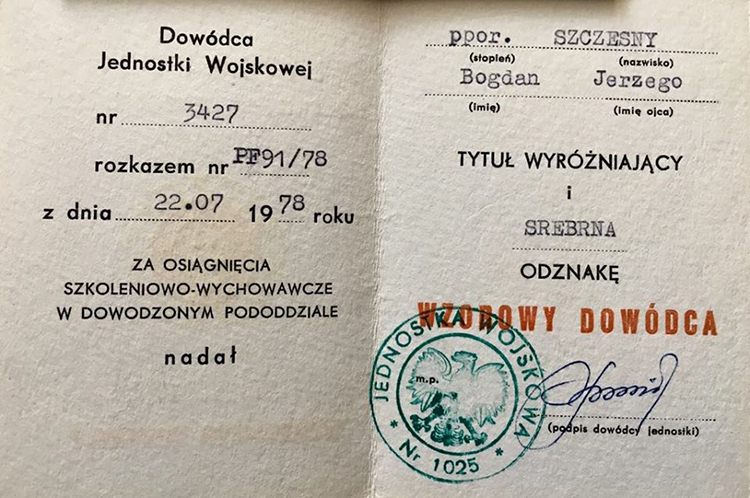 Dowódca
Jednostki Wojskowej
nr 3427
rozkazem nr PF91/78
z dnia 22.07 1978 roku
ZA OSIĄGNIĘCIA
SZKOLENIOWO-WYCHOWAWCZE
W DOWODZONYM PODODDZIALE
nadał
ppor. SZCZESNY
(stopień) (nazwisko)
Bogdan Jerzego
(imię) (imię ojca)
TYTUŁ WYRÓŻNIAJĄCY
i
SREBRNA
ODZNAKĘ
WZOROWY DOWÓDCA
JEDNOSTKA WOJSKOWA
m.p.
* Nr 1025 *
(podpis dowódcy jednostki)